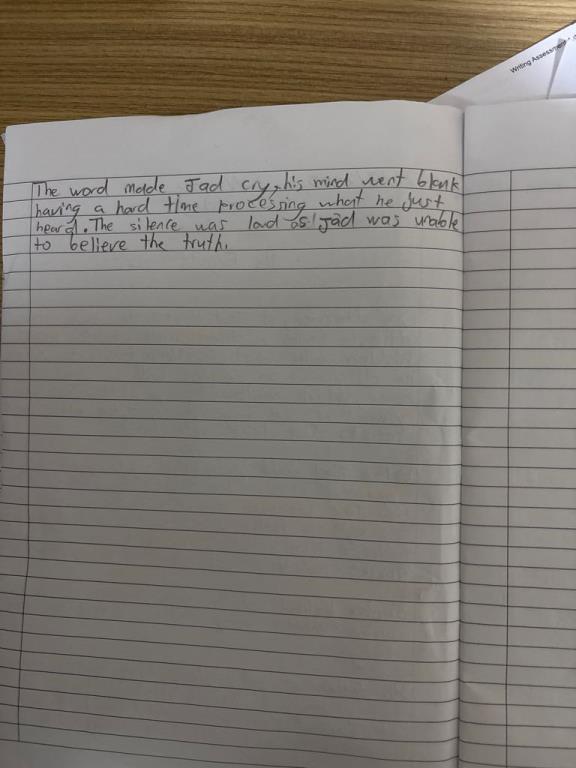 Writing Assessment
The word made Jad cry, his mind went blank
having a hard time processing what he just
heard. The silence was loud as Jad was unable
to believe the truth.